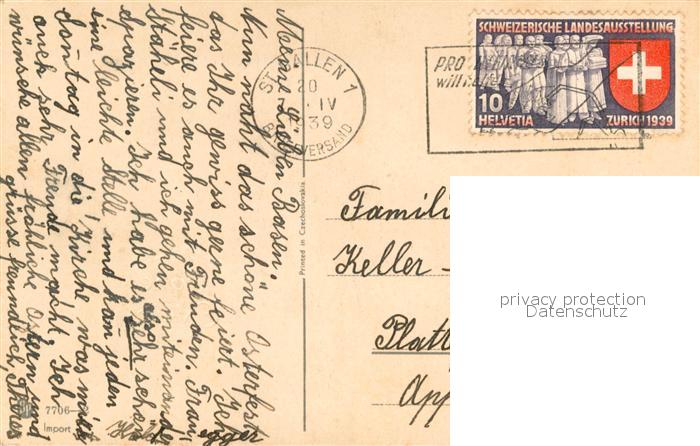 Meine Lieben Basen.
Nun naht das schöne Osterfest
das Ihr gewiss gerne feiert. Ich
feiere es auch mit Freuden. Frau
Stäheli und ich gehen miteinander
spazieren. Ich habe es also sehr schön
eine leichte Stelle und kann jeden
Sonntag in die Kirche was mir
auch sehr Freude macht. Ich
wünsche allen fröhliche Ostern und
grüsse freundlich,
ST. GALLEN 1
20
IV
39
BRIEFVERSAND
PRO
will
SCHWEIZERISCHE LANDESAUSSTELLUNG
10
HELVETIA
ZURICH 1939
Printed in Czechoslovakia
Famili
Keller -
Platt
App
privacy protection
Datenschutz
7706-
Import